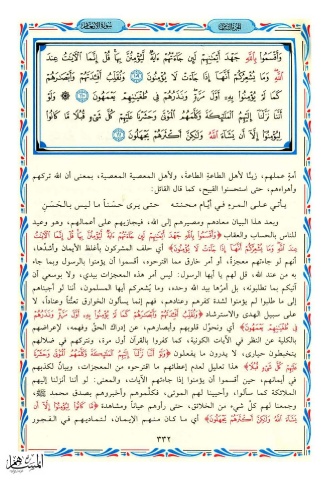 سورة الأنعام
الجزء الثامن
وَأَقْسَمُوا بِاللَّهِ جَهْدَ أَيْمَانِهِمْ لَئِن جَاءَتْهُمْ آيَةٌ لَّيُؤْمِنُنَّ بِهَا قُلْ إِنَّمَا الْآيَاتُ عِندَ
اللَّهِ وَمَا يُشْعِرُكُمْ أَنَّهَا إِذَا جَاءَتْ لَا يُؤْمِنُونَ ﴿١٠٩﴾ وَنُقَلِّبُ أَفْئِدَتَهُمْ وَأَبْصَارَهُمْ
كَمَا لَمْ يُؤْمِنُوا بِهِ أَوَّلَ مَرَّةٍ وَنَذَرُهُمْ فِي طُغْيَانِهِمْ يَعْمَهُونَ ﴿١١٠﴾ ۞ وَلَوْ
أَنَّنَا نَزَّلْنَا إِلَيْهِمُ الْمَلَائِكَةَ وَكَلَّمَهُمُ الْمَوْتَى وَحَشَرْنَا عَلَيْهِمْ كُلَّ شَيْءٍ قُبُلًا مَّا كَانُوا
لِيُؤْمِنُوا إِلَّا أَن يَشَاءَ اللَّهُ وَلَٰكِنَّ أَكْثَرَهُمْ يَجْهَلُونَ ﴿١١١﴾
أمةٍ عملهم، زيَّنا لأهل الطاعة الطاعة، ولأهل المعصية المعصية، بمعنى أن الله تركهم
وأهواءهم، حتى استحسنوا القبيح، كما قال القائل:
يأتي على المرء في أيام محنته حتى يرى حسناً ما ليس بالحَسَنِ
وبعد هذا البيان معادهم ومصيرهم إلى الله، فيجازيهم على أعمالهم، وهو وعيد
للناس بالحساب والعقاب ﴿وَأَقْسَمُوا بِاللَّهِ جَهْدَ أَيْمَانِهِمْ لَئِن جَاءَتْهُمْ آيَةٌ لَّيُؤْمِنُنَّ بِهَا قُلْ إِنَّمَا الْآيَاتُ
عِندَ اللَّهِ وَمَا يُشْعِرُكُمْ أَنَّهَا إِذَا جَاءَتْ لَا يُؤْمِنُونَ﴾ أي حلف المشركون بأغلظ الأيمان وأشدِّها،
أنهم لو جاءتهم معجزةٌ، أو أمر خارق مما اقترحوه، أقسموا أن يؤمنوا بالرسول وبما جاء
به من عند الله، قل لهم يا أيها الرسول: ليس أمر هذه المعجزات بيدي، ولا بوسعي أن
آتيكم بما تطلبونه، بل أمرها بيد الله وحده، وما يُشعركم أيها المسلمون، أننا لو أجبناهم
إلى ما طلبوا لم يؤمنوا لشدة كفرهم وعنادهم، فهم إنما يسألون الخوارق تعنُّتاً وعناداً، لا
على سبيل الهدى والاسترشاد ﴿وَنُقَلِّبُ أَفْئِدَتَهُمْ وَأَبْصَارَهُمْ كَمَا لَمْ يُؤْمِنُوا بِهِ أَوَّلَ مَرَّةٍ وَنَذَرُهُمْ
فِي طُغْيَانِهِمْ يَعْمَهُونَ﴾ أي ونحوِّل قلوبهم وأبصارهم، عن إدراك الحقِّ وفهمه، لإعراضهم
بالكلية عن النظر في الآيات الكونية، كما كفروا بالقرآن أول مرة، ونتركهم في ضلالهم
يتخبطون حيارى، لا يدرون ما يفعلون ﴿وَلَوْ أَنَّنَا نَزَّلْنَا إِلَيْهِمُ الْمَلَائِكَةَ وَكَلَّمَهُمُ الْمَوْتَى وَحَشَرْنَا
عَلَيْهِمْ كُلَّ شَيْءٍ قُبُلًا﴾ هذا تعليل لعدم إعطائهم ما اقترحوه من المعجزات، وبيانٌ لكذبهم
في أيمانهم، حين أقسموا أن يؤمنوا إذا جاءتهم الآيات، والمعنى: لو أننا أنزلنا إليهم
الملائكة كما سألوا، وأحيينا لهم الموتى، فكلَّموهم وأخبروهم بصدق محمد ﷺ،
وجمعنا لهم كلَّ شيء من الخلائق، حتى رأوهم عياناً ومشاهدة ﴿مَّا كَانُوا لِيُؤْمِنُوا إِلَّا أَن
يَشَاءَ اللَّهُ وَلَٰكِنَّ أَكْثَرَهُمْ يَجْهَلُونَ﴾ أي ما كان منهم الإيمان، لتماديهم في الفجور
٣٣٢